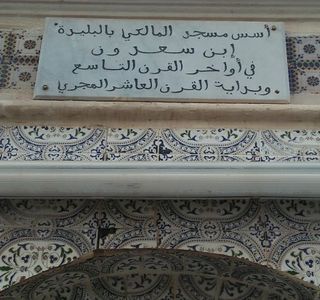 أسس مسجد المالكي بالبليدة"
إبن سعدون
في أواخر القرن التاسع
وبداية القرن العاشر الهجري